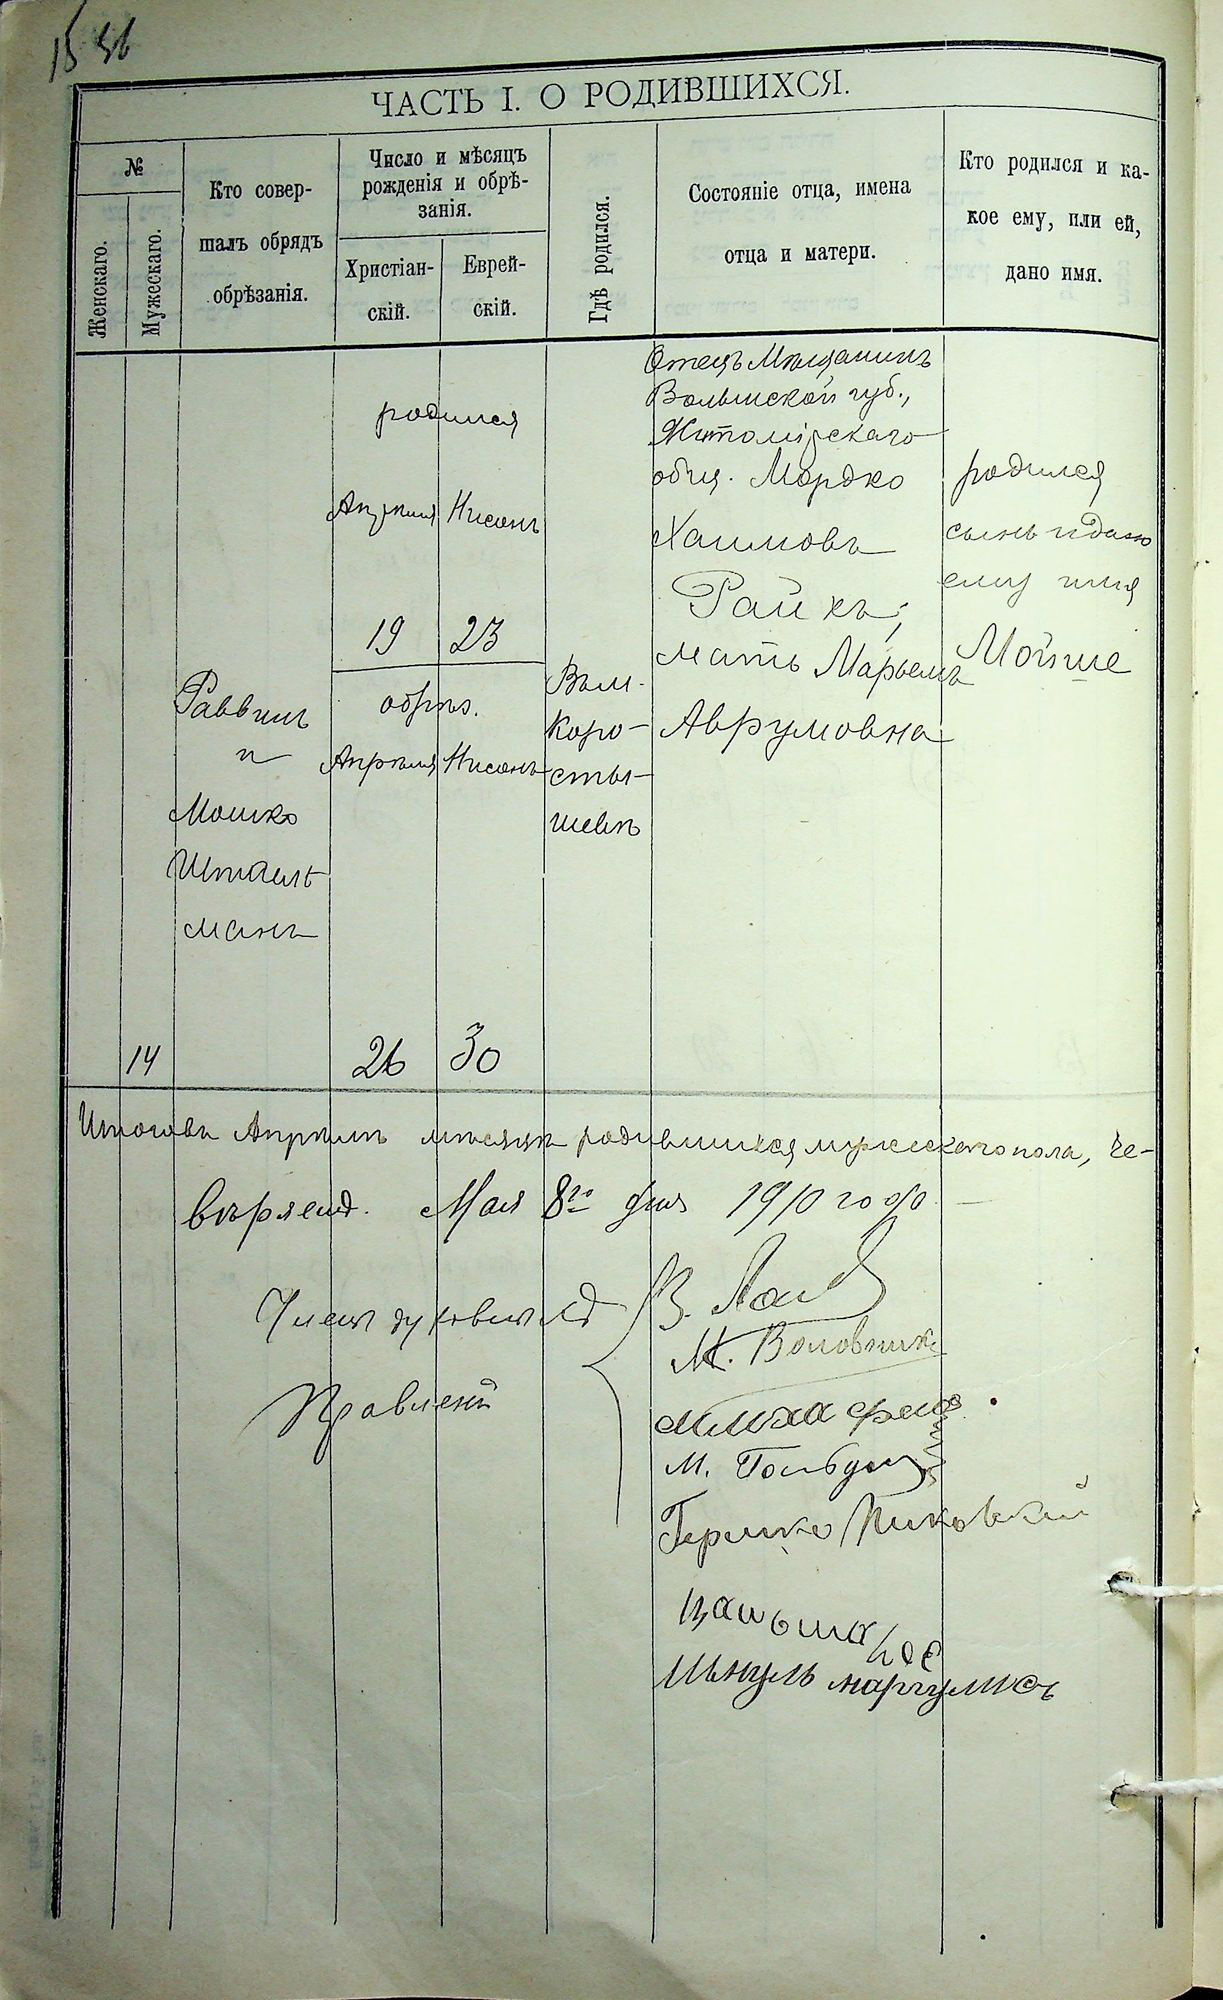 ЧАСТЬ I. О РОДИВШИХСЯ.
№
Женскаго.
Мужескаго.
Кто совер-
шалъ обрядъ
обрѣзанія.
Число и мѣсяцъ
рожденія и обрѣ-
занія.
Христіан-
скій.
Еврей-
скій.
Гдѣ родился.
Состояніе отца, имена
отца и матери.
Кто родился и ка-
кое ему, или ей,
дано имя.
14
Раввинъ
и
Мошко
Штаель
манъ
родился
Апрѣля
19
обрѣз.
Апрѣля
26
Нисонъ
23
Нисонъ
30
Въ м.
Коро-
сты-
шевѣ
Отецъ Мѣщанинъ
Волынской губ.,
Житомірскаго
общ. Мордко
Хаимовъ
Райхъ,
мать Марьемъ
Аврумовна
родился
сынъ и дано
ему имя
Мойше
Итого въ Апрѣлѣ мѣсяцѣ родившихся мужескаго пола, че-
Мая 8го дня 1910 года
Члены духовнаго
Правленія
М. Воловник
М.
Гершко Пиковскій
Шмуль маргулисъ